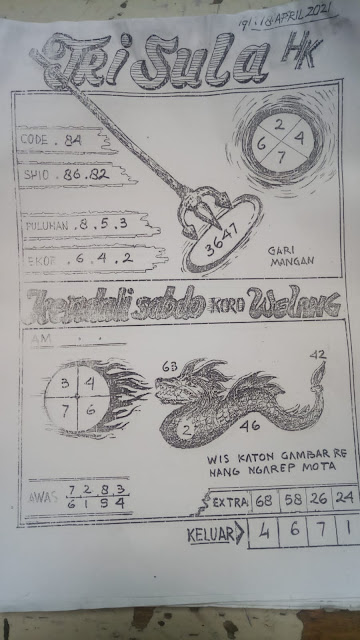 191.18 APRIL 2021
Tri Sula HK
CODE . 84
SHIO . 86.82
PULUHAN . 8.5.3
EKOR . 6.4.2
2
6 4
7
3647
GARI
MANGAN
sabdo KORO WELANG
AM . .
3 4
7 6
63
42
2
46
WIS KATON GAMBAR RE
NANG NGAREP MOTA
AWAS 7 2 8 3
6 1 9 4
EXTRA 68 58 26 24
KELUAR> 4 6 7 1